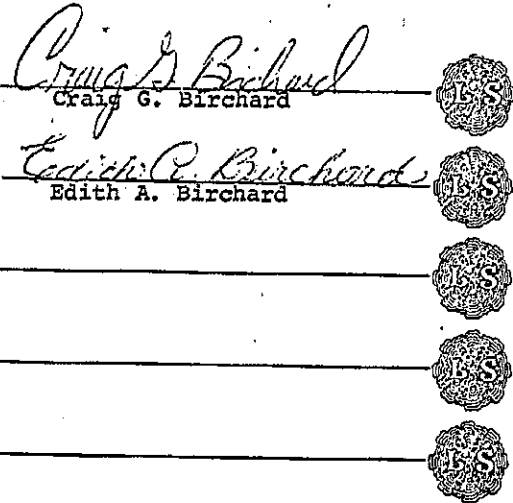 Craig G. Birchard LS
Craig G. Birchard
Edith A. Birchard LS
Edith A. Birchard
LS
LS
LS